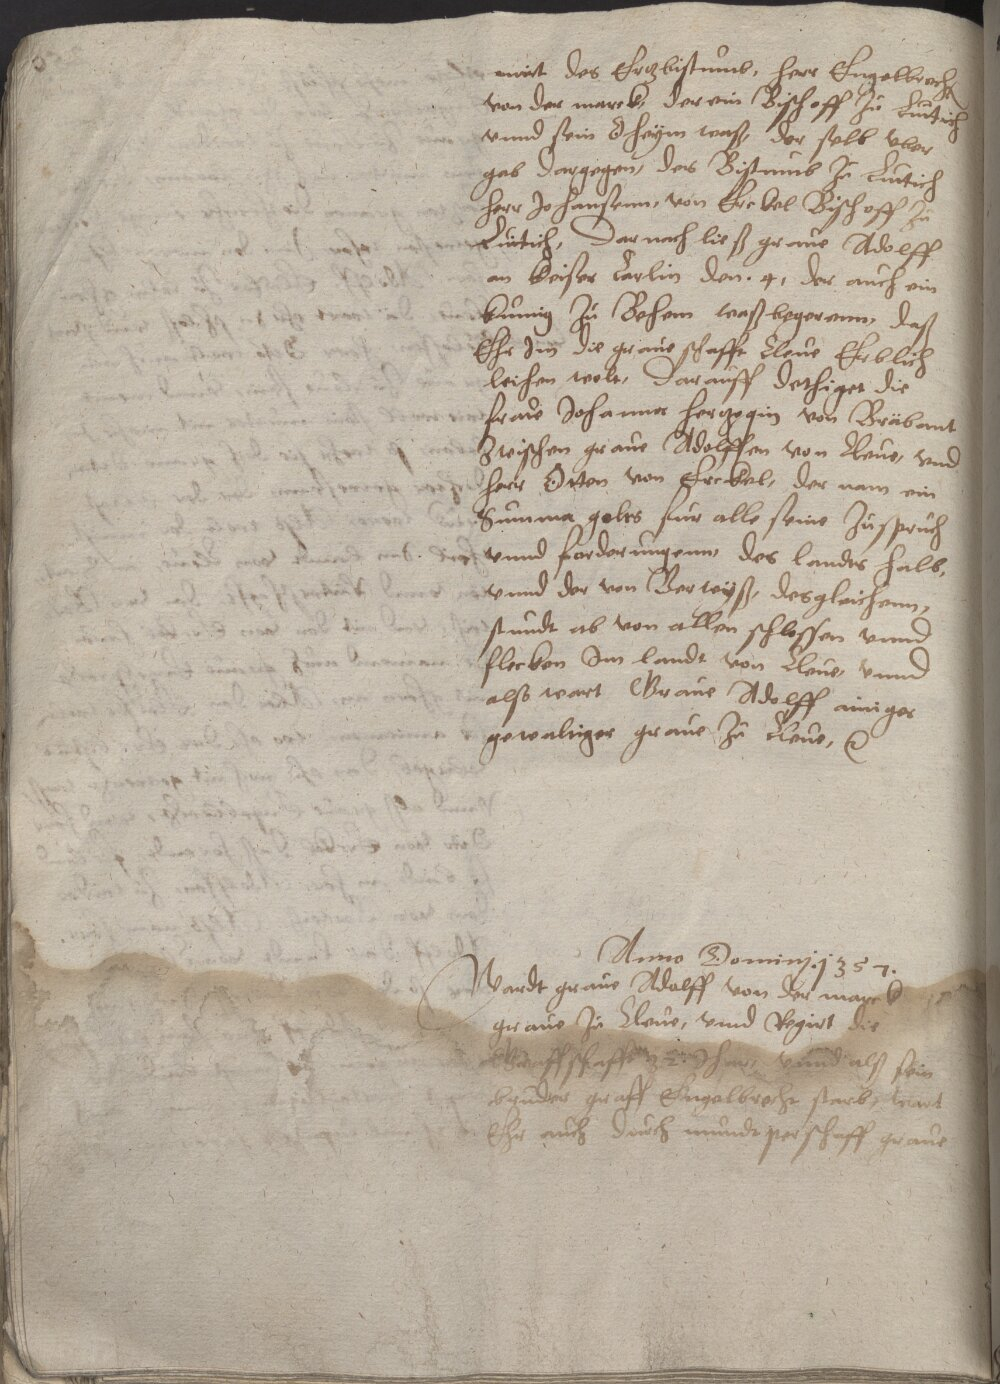 mirt des Ertzbistumb, herr Engelbrecht
von der marck, der ein Bischoff zu Luttich
vnnd sein Oheym waß, der selb vber
gab dargegen, des Bistumb zu Luttich
herr Johansenn, von Erckel Bischoff zu
Luttich, Darnach ließ graue Adolff
an keiser Carlin den .4. der auch ein
kunig zu Behem waß begerenn, daß
Ehr Im die graueschafft Cleue Erblich
leihen wolt, Darauff dethiget die
fraw Johanna hertzogin von Brabant
zwischen graue Adolffen von Cleue, vnd
herr Otten von Erckel, der nam ein
Summa geltes fur alle seine zuspruch
vnnd forderungenn, des landts halb,
vnnd der von Berwyß, desgleichenn,
stundt ab von allen schlossen vnnd
flecken Im landt von Cleue, vnnd
also wart Graue Adolff ainiger
gewaltiger graue zu Cleue,
Anno Dominj .1357.
Wardt graue Adolff von der marck
graue zu Cleue, vnnd Regirt die
Graffschafft Jhar, vnnd alß sein
bruder graff Engelbrecht starb, wart
Ehr auch durch mundtperschafft graue